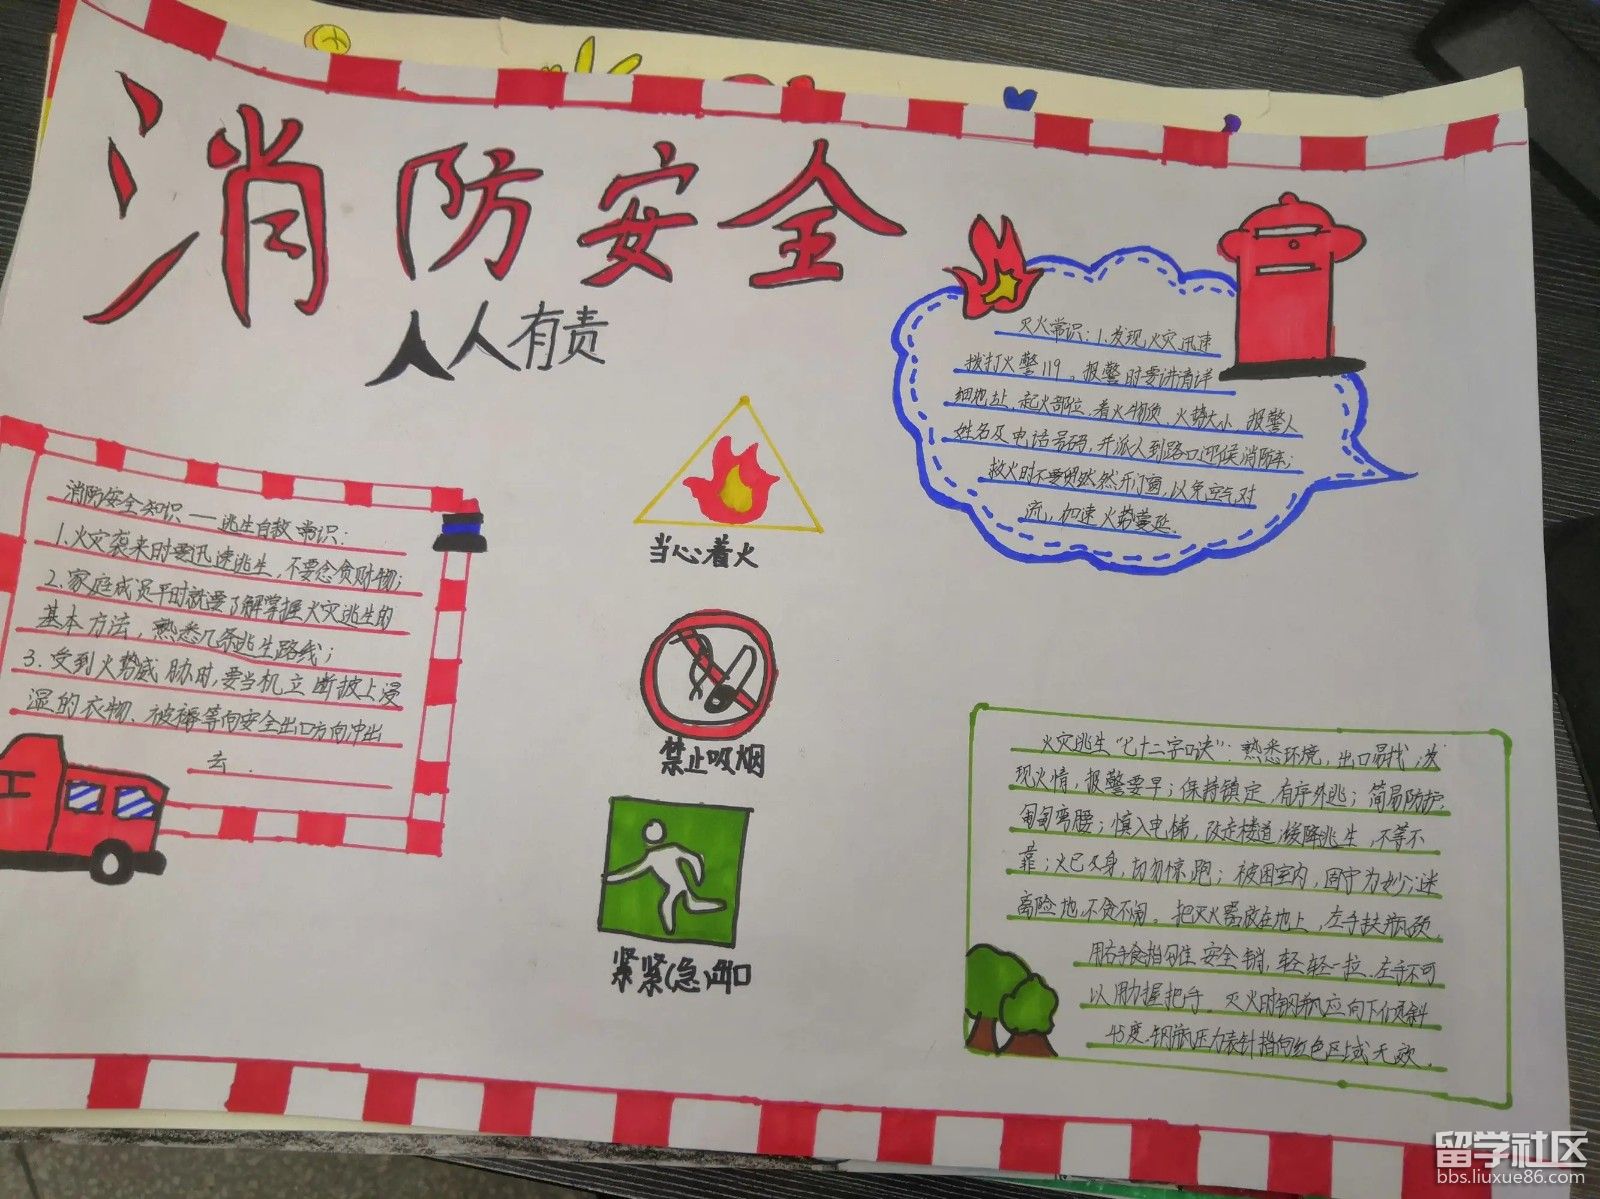 消防安全
人人有责
灭火常识：1.发现火灾迅速
拨打火警119。报警时要讲清详
细地址、起火部位、着火物质、火势大小、报警人
姓名及电话号码，并派人到路口迎侯消防车；
救火时不要贸然然开门窗，以免空气对
流，加速火势蔓延.
消防安全知识——逃生自救常识：
1.火灾袭来时要迅速逃生，不要念贪财物；
2.家庭成员平时就要了解掌握火灾逃生的
基本方法，熟悉几条逃生路线；
3.受到火势威胁时，要当机立断披上浸
湿的衣物、被褥等向安全出口方向冲出
去.
当心着火
禁止吸烟
紧紧(急)出口
火灾逃生“七十二字口诀”：熟悉环境，出口易找；发
现火情，报警要早；保持镇定，有序外逃；简易防护，
匍匐弯腰；慎入电梯，改走楼道；缓降逃生，不等不
靠；火已及身，切勿惊跑；被困室内，固守为妙；迷
离险地，不贪不闹。把灭火器放在地上，左手扶瓶颈、
用右手食指勾住安全销，轻轻一拉.左手不可
以用力握把手。灭火时钢瓶应向下倾斜
45度.钢瓶压力表针指向红色区域无效.
留学社区
bbs.liuxue86.com